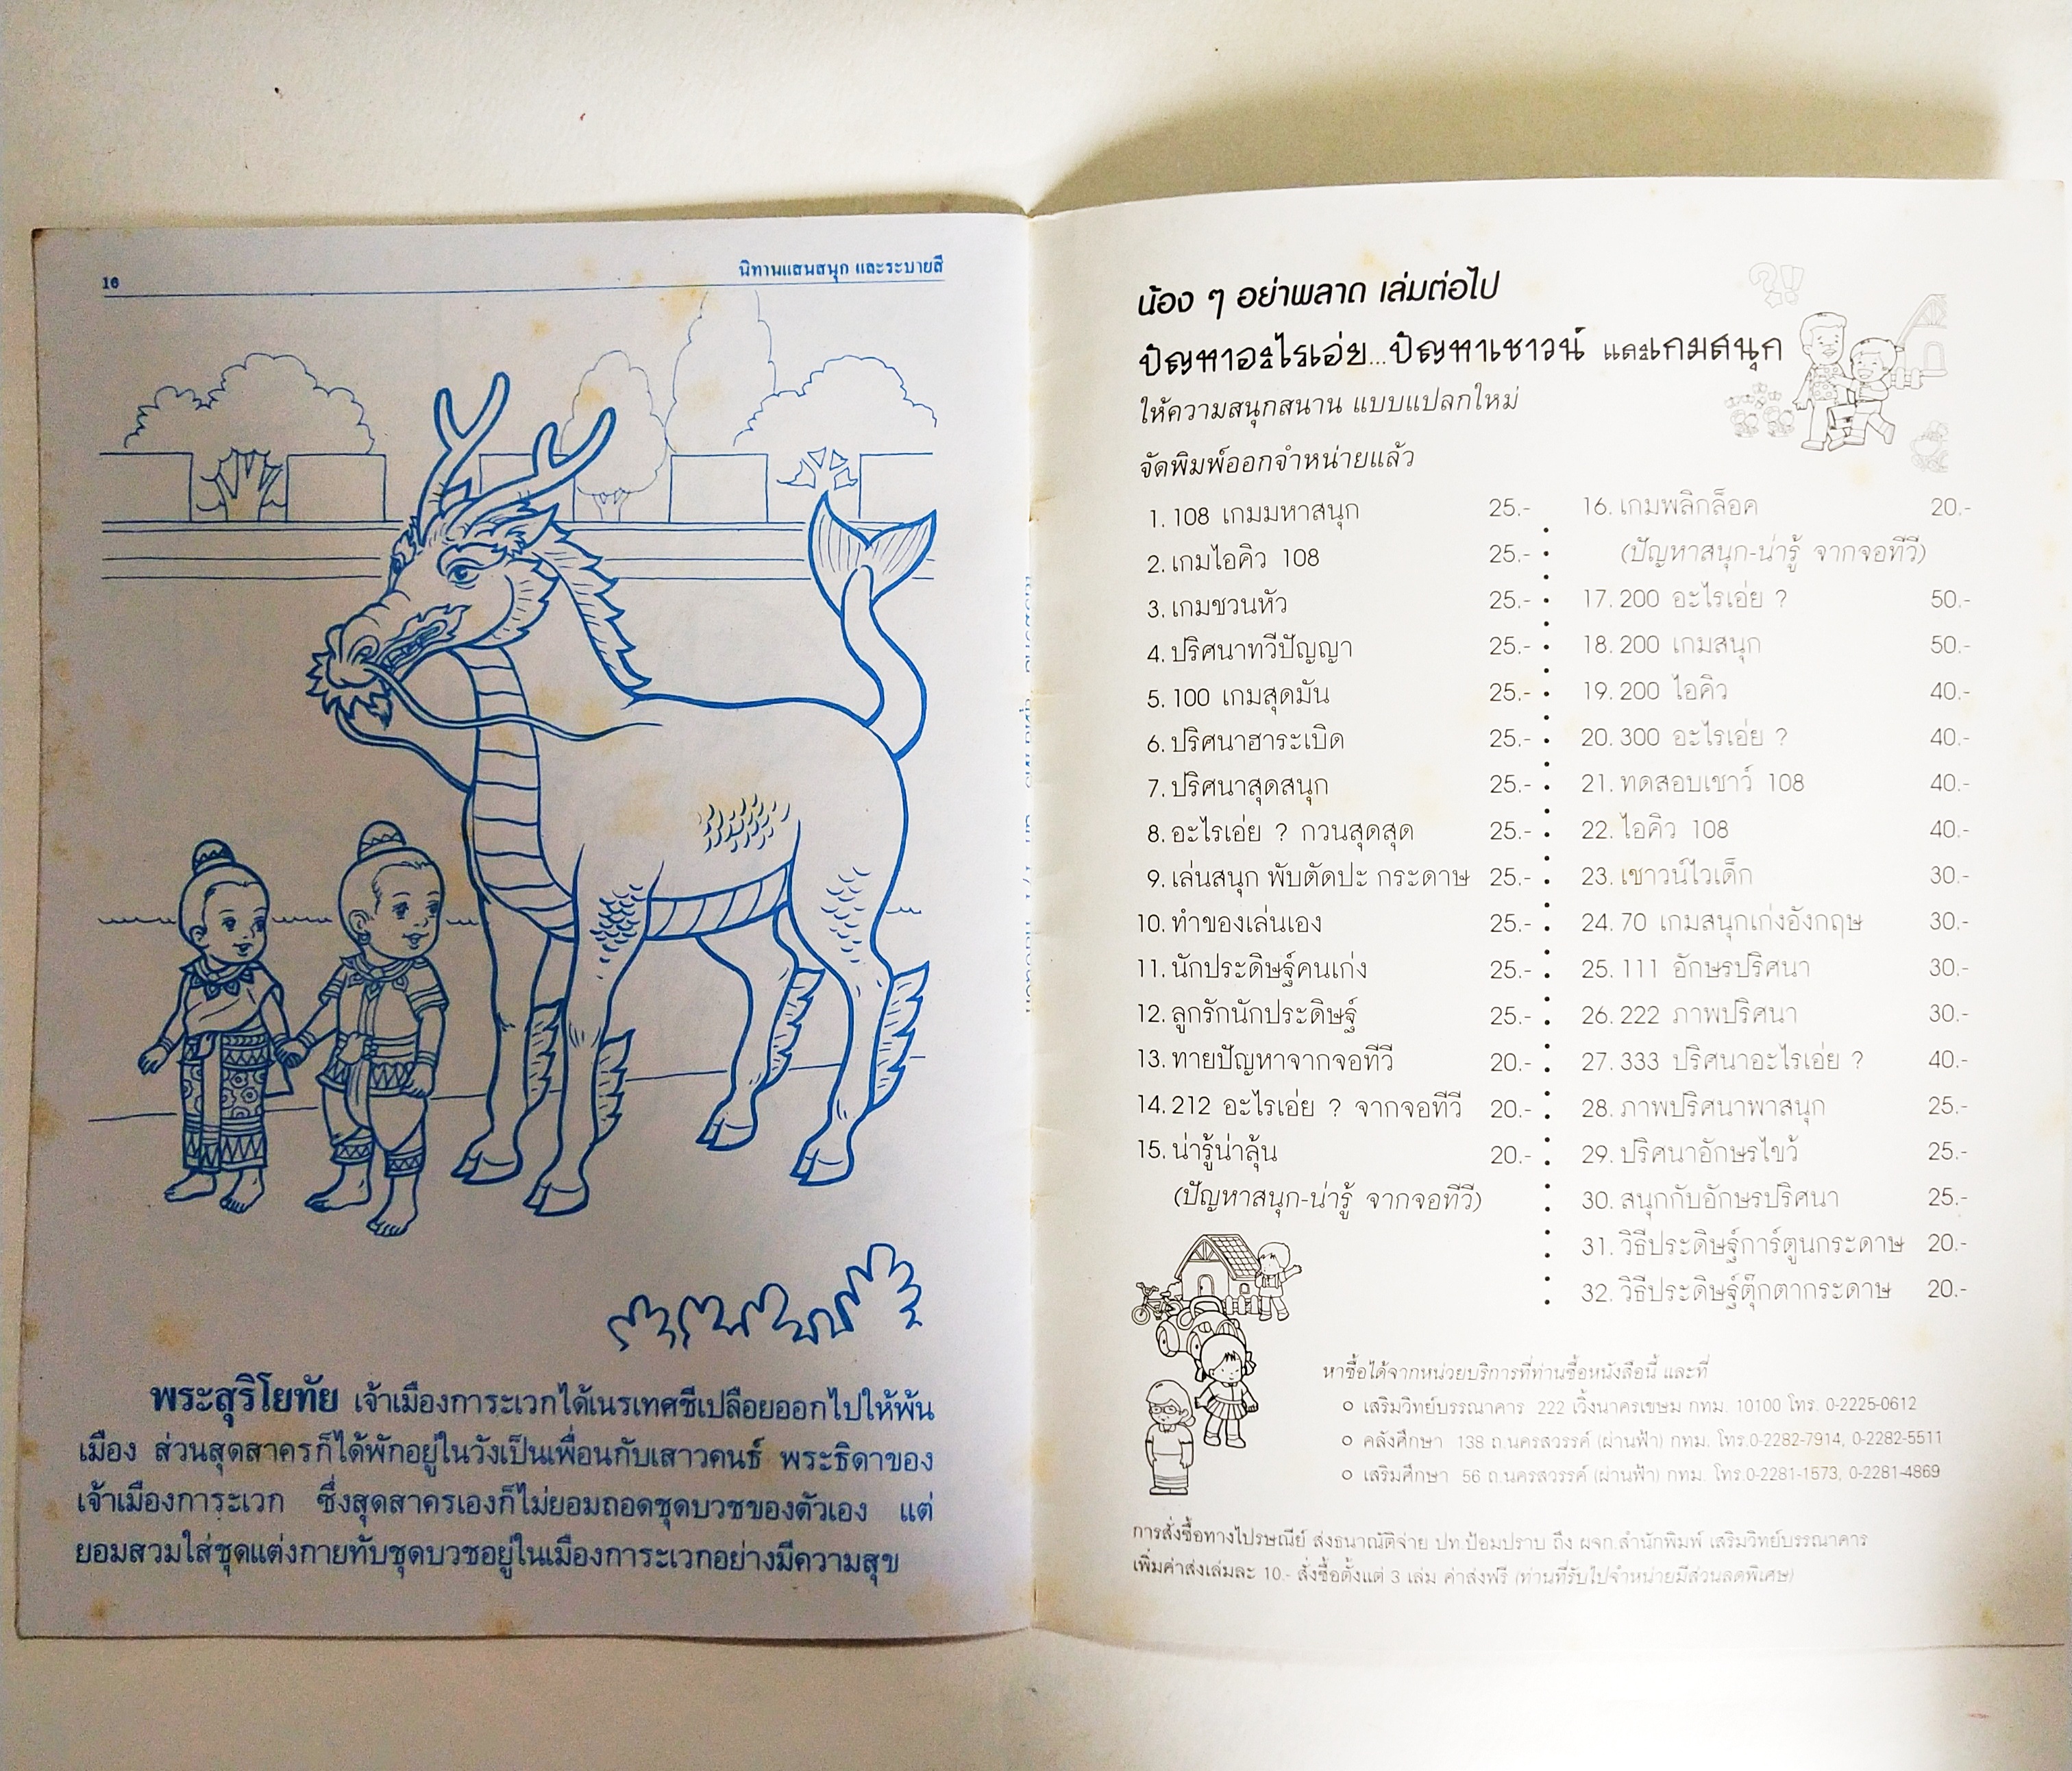 16
นิทานแสนสนุก และระบายสี
พระสุริโยทัย เจ้าเมืองการะเวกได้เนรเทศชีเปลือยออกไปให้พ้น
เมือง ส่วนสุดสาครก็ได้พักอยู่ในวังเป็นเพื่อนกับเสาวคนธ์ พระธิดาของ
เจ้าเมืองการะเวก ซึ่งสุดสาครเองก็ไม่ยอมถอดชุดบวชของตัวเอง แต่
ยอมสวมใส่ชุดแต่งกายทับชุดบวชอยู่ในเมืองการะเวกอย่างมีความสุข
น้อง ๆ อย่าพลาด เล่มต่อไป
ปัญหาอะไรเอ่ย...ปัญหาเชาวน์ และเกมสนุก
ให้ความสนุกสนาน แบบแปลกใหม่
จัดพิมพ์ออกจำหน่ายแล้ว
1. 108 เกมมหาสนุก 25.-
2. เกมไอคิว 108 25.-
3. เกมชวนหัว 25.-
4. ปริศนาทวีปัญญา 25.-
5. 100 เกมสุดมัน 25.-
6. ปริศนาฮาระเบิด 25.-
7. ปริศนาสุดสนุก 25.-
8. อะไรเอ่ย ? กวนสุดสุด 25.-
9. เล่นสนุก พับตัดปะ กระดาษ 25.-
10. ทำของเล่นเอง 25.-
11. นักประดิษฐ์คนเก่ง 25.-
12. ลูกรักนักประดิษฐ์ 25.-
13. ทายปัญหาจากจอทีวี 20.-
14. 212 อะไรเอ่ย ? จากจอทีวี 20.-
15. น่ารู้น่าลุ้น 20.-
(ปัญหาสนุก-น่ารู้ จากจอทีวี)
16. เกมพลิกล็อค 20.-
(ปัญหาสนุก-น่ารู้ จากจอทีวี)
17. 200 อะไรเอ่ย ? 50.-
18. 200 เกมสนุก 50.-
19. 200 ไอคิว 40.-
20. 300 อะไรเอ่ย ? 40.-
21. ทดสอบเชาว์ 108 40.-
22. ไอคิว 108 40.-
23. เชาวน์ไวเด็ก 30.-
24. 70 เกมสนุกเก่งอังกฤษ 30.-
25. 111 อักษรปริศนา 30.-
26. 222 ภาพปริศนา 30.-
27. 333 ปริศนาอะไรเอ่ย ? 40.-
28. ภาพปริศนาพาสนุก 25.-
29. ปริศนาอักษรไขว้ 25.-
30. สนุกกับอักษรปริศนา 25.-
31. วิธีประดิษฐ์การ์ตูนกระดาษ 20.-
32. วิธีประดิษฐ์ตุ๊กตากระดาษ 20.-
หาซื้อได้จากหน่วยบริการที่ท่านซื้อหนังสือนี้ และที่
เสริมวิทย์บรรณาคาร 222 เวิ้งนาครเขษม กทม. 10100 โทร. 0-2225-0612
คลังศึกษา 138 ถ.นครสวรรค์ (ผ่านฟ้า) กทม. โทร.0-2282-7914, 0-2282-5511
เสริมศึกษา 56 ถ.นครสวรรค์ (ผ่านฟ้า) กทม. โทร.0-2281-1573, 0-2281-4869
การสั่งซื้อทางไปรษณีย์ ส่งธนาณัติจ่าย ปท.ป้อมปราบ ถึง ผจก.สำนักพิมพ์ เสริมวิทย์บรรณาคาร
เพิ่มค่าส่งเล่มละ 10.- สั่งซื้อตั้งแต่ 3 เล่ม ค่าส่งฟรี (ท่านที่รับไปจำหน่ายมีส่วนลดพิเศษ)